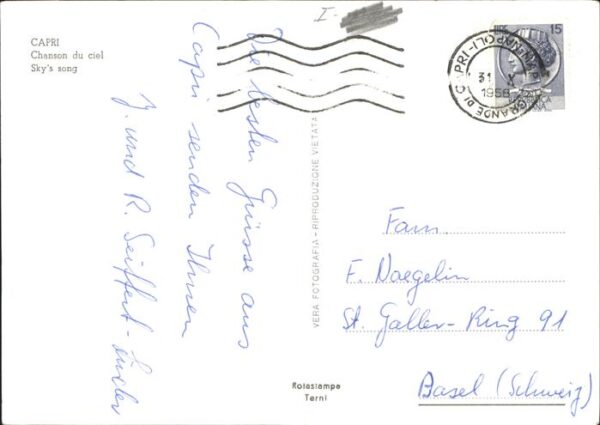 CAPRI
Chanson du ciel
Sky's song
I-
Die besten Grüsse aus
Capri senden Ihnen
J. und R. Seiffert-
VERA FOTOGRAFIA - RIPRODUZIONE VIETATA
Rotastampa
Terni
15
MARINA GRANDE DI CAPRI-(NAPOLI)
31 X
1958
Fam.
F. Naegelin
St. Galler-Ring 91
Basel (Schweiz)